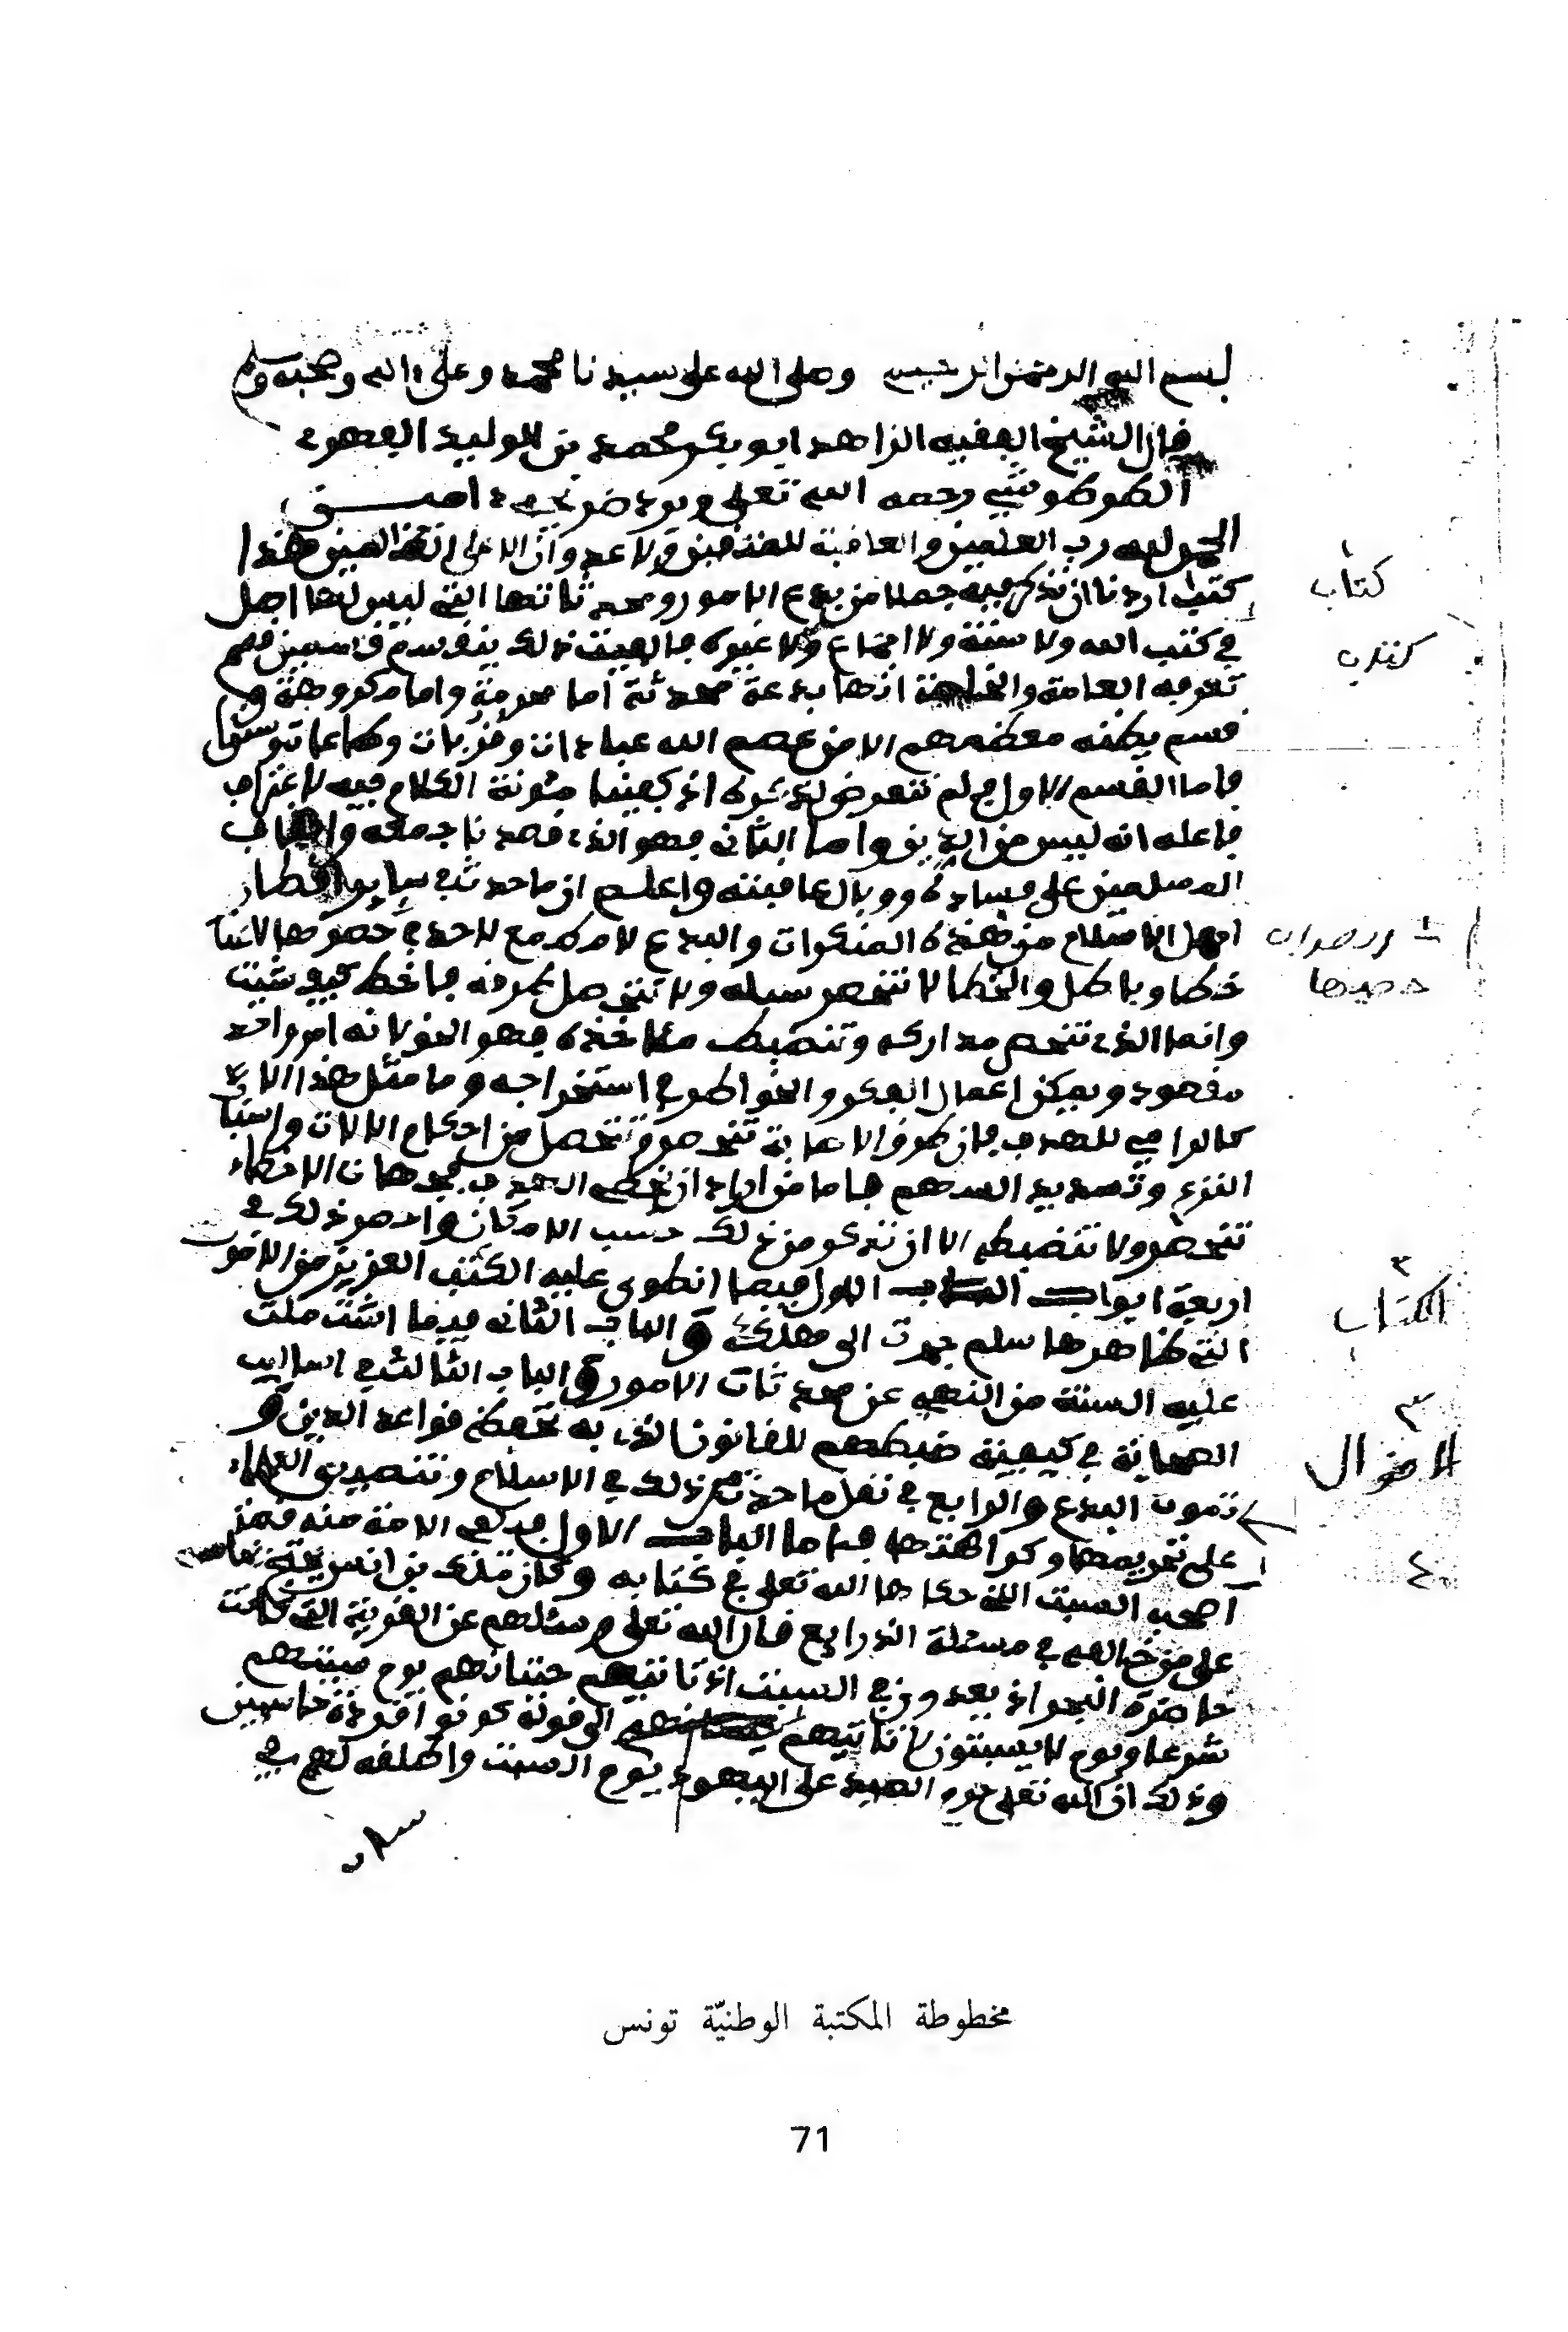 بسم الله الرحمن الرحيم وصلى الله على سيدنا محمد وعلى ءاله وصحبه وسلم
قال الشيخ الفقيه الزاهد ابو بكر محمد بن الوليد الفهري
الطرطوشي رحمه الله تعلى
الحمد لله رب العلمين والعاقبة للمتقين ولا عدوان الا على الظلمين هذا
كتب اردنا ان نذكر فيه جملا من بدع الامور ومحدثاتها التي ليس لها اصل
في كتب الله ولا سنة ولا اجماع ولا غيره فالفيت ذلك ينقسم قسمين قسم
تعرفه العامة والخاصة انها بدعة محدثة اما محرمة واما مكروهة و
قسم يظنه معظمهم الا من عصم الله عبادات وقربات وطاعات وسننا
فاما القسم الاول فلم نتعرض لذكره اذ كفينا مئونة الكلام فيه لاعتراف
فاعله انه ليس من الدين واما الثاني فهو الذي قصدنا جمعه وايقاف
المسلمين على فساده ووبال عاقبته واعلم ان ما حدث في ساير اقطار
اهل الاسلام من هذه المنكرات والبدع لا مطمع لاحد في حصرها لانها
خطا وباطل والخطا لا تنحصر سبله ولا تتحصل طرقه فاخط كيف شئت
وانما الذي تنحصر مداركه وتنضبط مئاخذه فهو الحق لانه امر واحد
مقصود ويمكن اعمال الفكر والخواطر في استخراجه وما مثل هذا الا
كالرامي للهدف فان طرق الاصابة تنحصر وتتحصل من احكام الالات واسباب
النزع وتسديد السهم فاما من اراد ان يخطي الهدف فجهات الاخطاء لا
تنحصر ولا تنضبط الا ان نذكر من ذلك حسب الامكان واحصر ذلك في
اربعة ابواب الباب الاول فيما انطوى عليه الكتب العزيز من الامور
التي ظاهرها سلم جرت الى هلك والباب الثاني فيما اشتملت
عليه السنة من النهي عن محدثات الامور والباب الثالث في اساليب
الصحابة في كيفية ضبطهم للقانون الذي به تحفظ قواعد الدين و
تموت البدع والرابع في نقل ما حدث من ذلك في الاسلام وتنصيص العلماء
على تحريمها وكراهتها فاما الباب الاول
اصحب السبت التي حكاها الله تعلى في كتابه وكان ملك بن انس
على من خالفه في مسئلة الذرايع قال الله تعلى وسئلهم عن القرية التي كانت
حاضرة البحر اذ يعدون في السبت اذ تاتيهم حيتانهم يوم سبتهم
شرعا ويوم لا يسبتون لا تاتيهم الى قوله كونوا قردة خاسين
وذلك ان الله تعلى حرم الصيد على اليهود يوم السبت واطلقه لهم في
كتاب
كتاب
حصرها
الكتاب
٣
الاقوال
٤
مخطوطة المكتبة الوطنيّة تونس
71